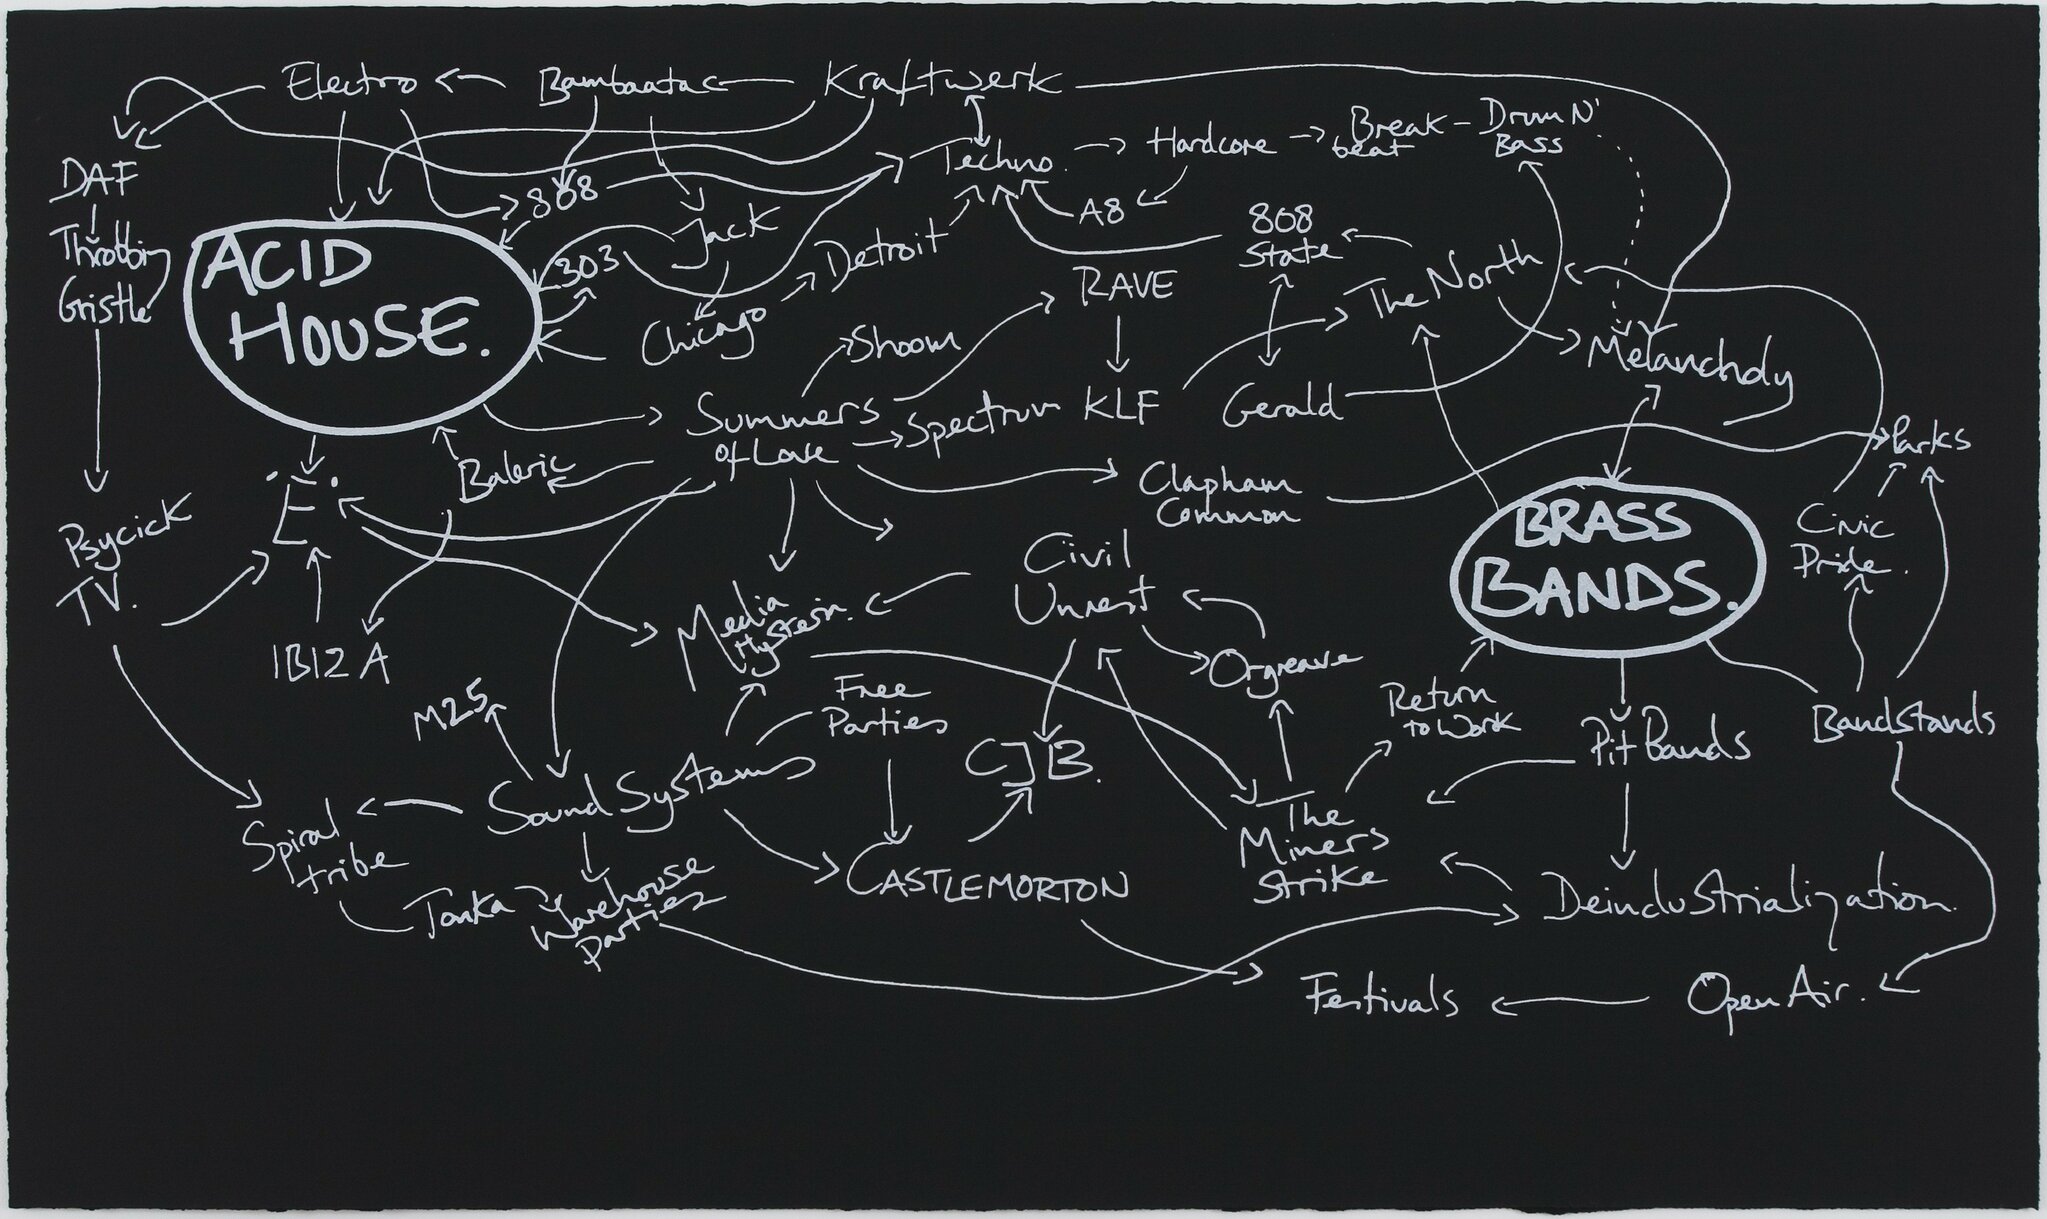 Electro
Bambaataa
Kraftwerk
DAF
Throbbin
Gristle
ACID
HOUSE.
808
303
Jack
Chicago
Detroit
Techno.
Hardcore
Break
beat
Drum N'
Bass
A8
808
State
RAVE
The North
Melancholy
Shoom
Summers
of Love
Spectrum
KLF
Gerald
Parks
Baleric
Clapham
Common
BRASS
BANDS.
Civic
Pride.
Psycick
TV.
E
IBIZA
Media
Hysteria.
Civil
Unrest
Orgreave
Return
to Work
Pit Bands
Bandstands
M25
Free
Parties
CJB.
Sound Systems
Spiral
tribe
Tonka
Warehouse
Parties
CASTLEMORTON
The
Miners
Strike
Deindustrialization.
Festivals
Open Air.